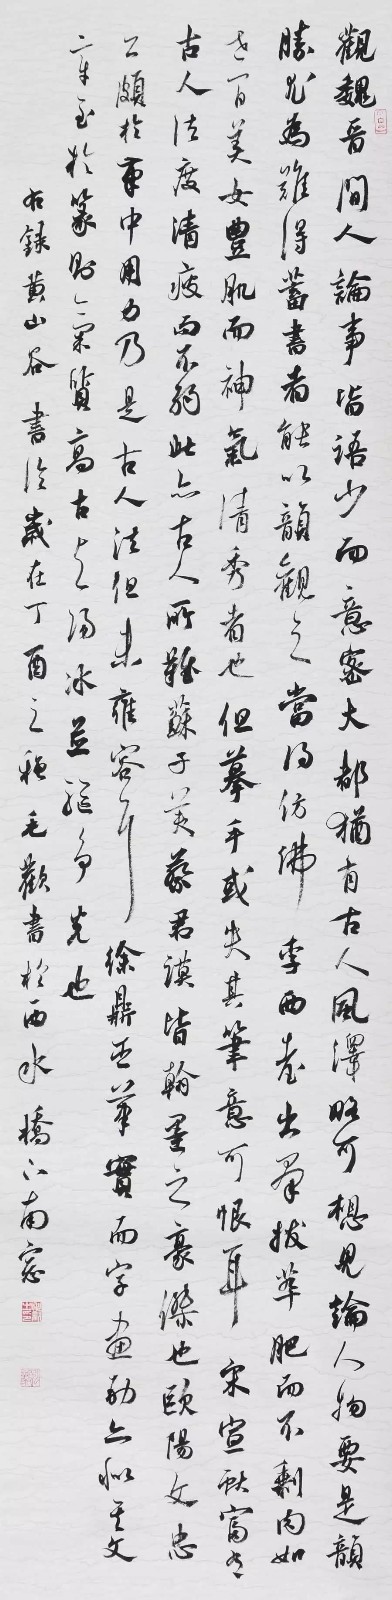 觀魏晉間人論事皆語少而意密大都猶有古人風澤略可想見論人物要是韻
勝尤為難得蓄書者能以韻觀之當得仿佛 李西臺出羣拔萃肥而不剩肉如
世間美女豐肌而神氣清秀者也但摹手或失其筆意可恨耳 宋宣獻富有
古人法度清瘦而不弱此亦古人所難蘇子美蔡君謨皆翰墨之豪傑也歐陽文忠
公頗於筆中用力乃是古人法但未雍容耳 徐鼎臣筆實而字畫勁亦似其文
章至於篆則氣質高古與陽冰並驅爭先也
右錄黃山谷書論歲在丁酉之秋毛歡書於西水橋下南窗